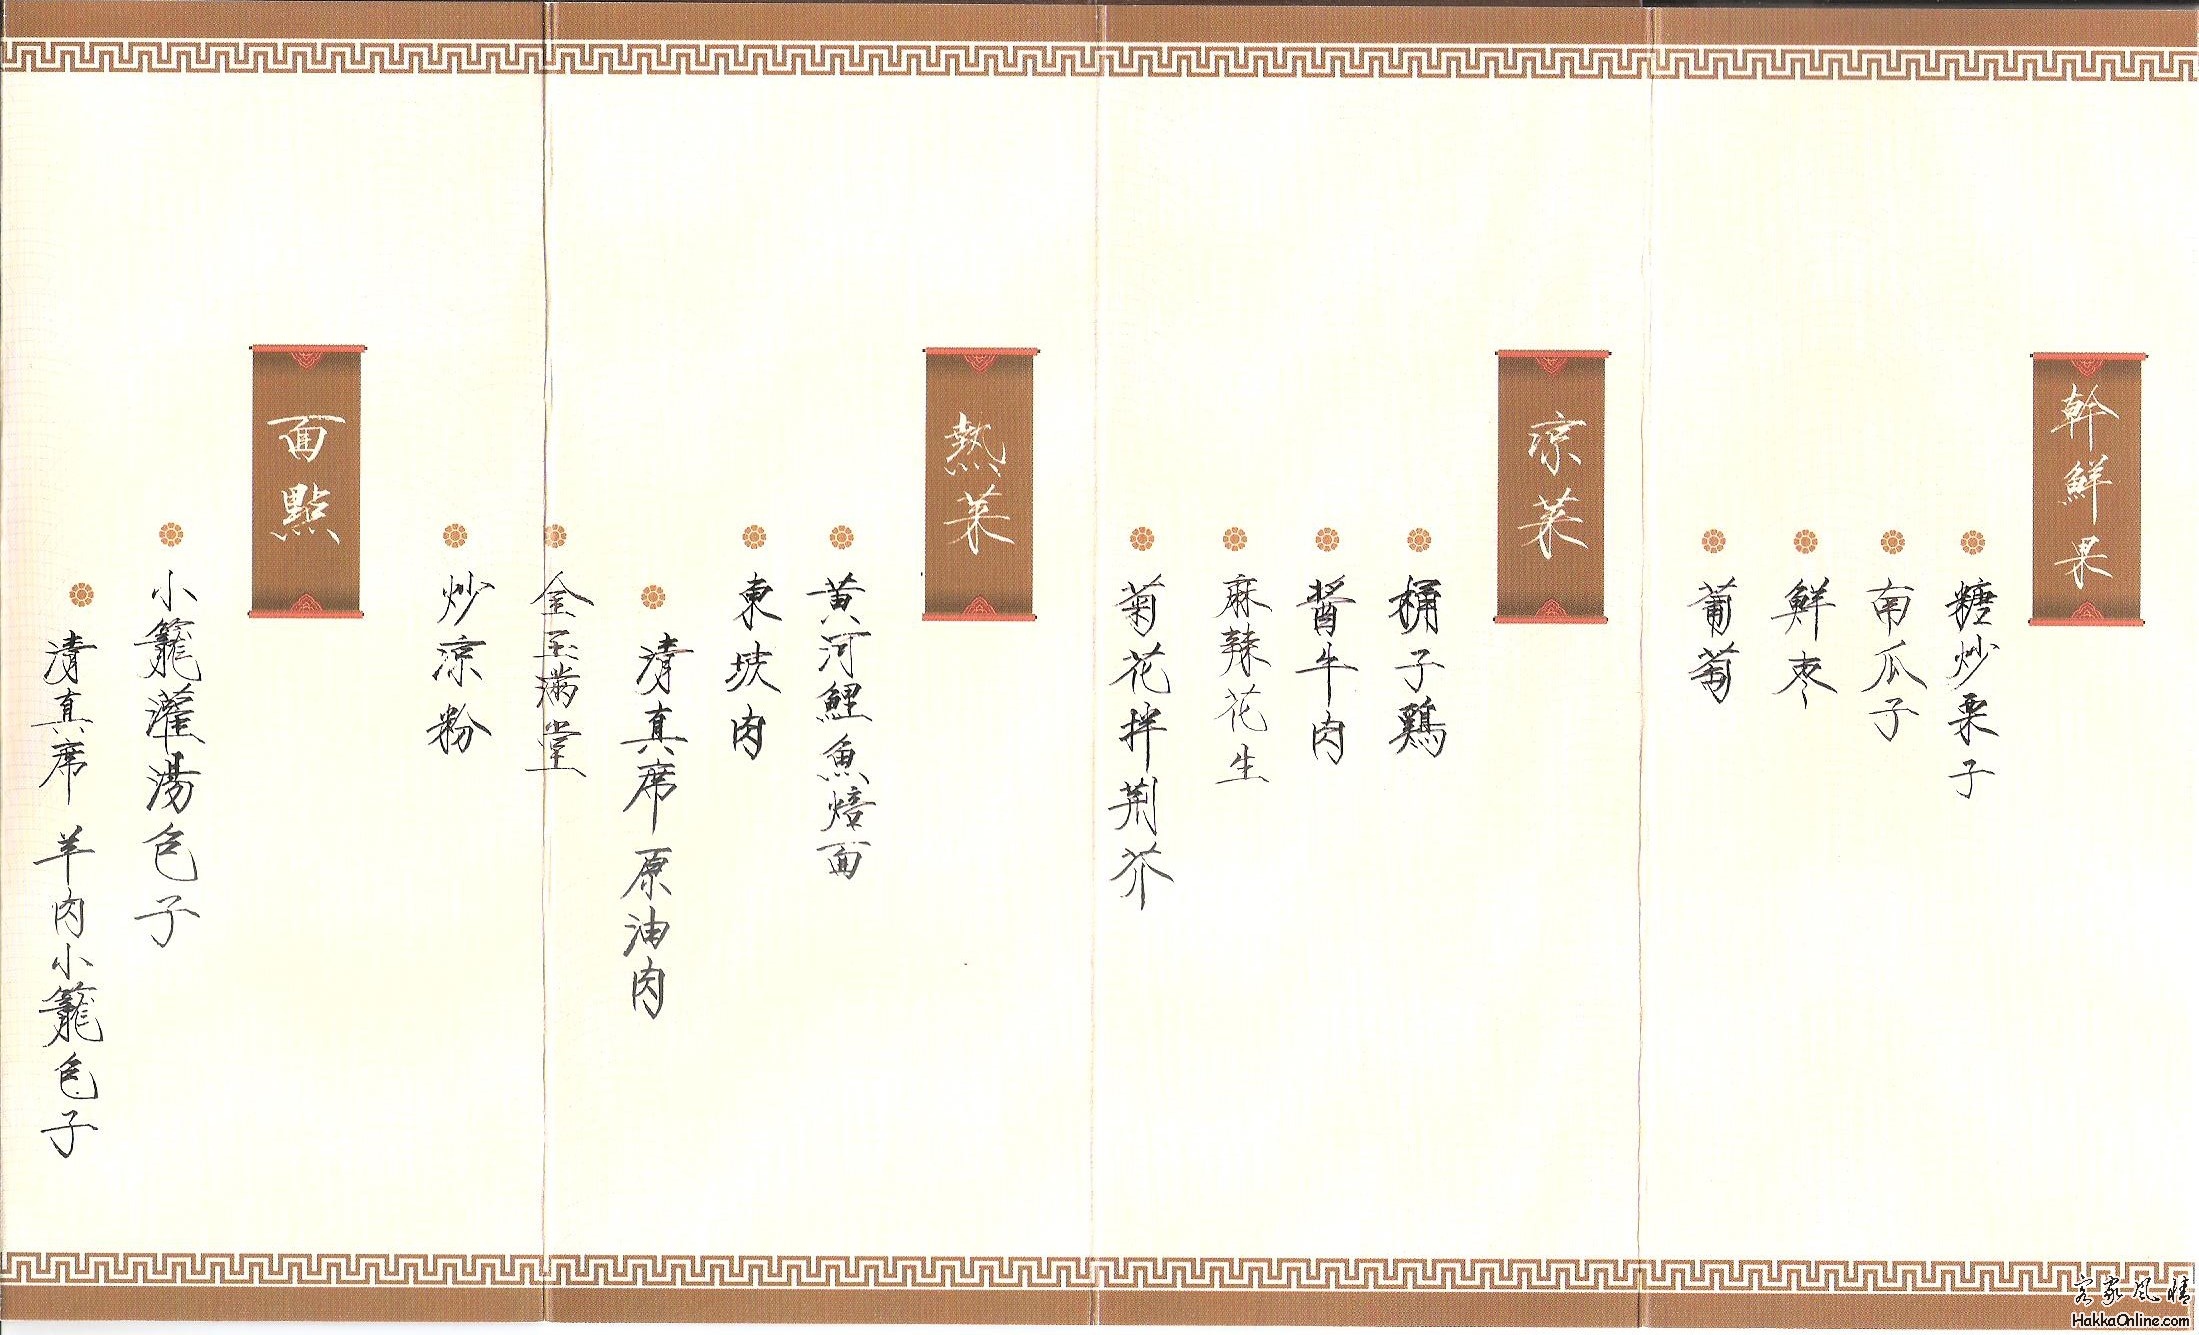 幹鮮果
糖炒栗子
南瓜子
鮮枣
葡萄
涼菜
桶子鷄
醬牛肉
麻辣花生
菊花拌荆芥
熱菜
黄河鯉魚焙面
東坡肉
清真席原油肉
金玉滿堂
炒凉粉
面點
小籠灌湯包子
清真席 羊肉小籠包子
客家风情
HakkaOnline.com